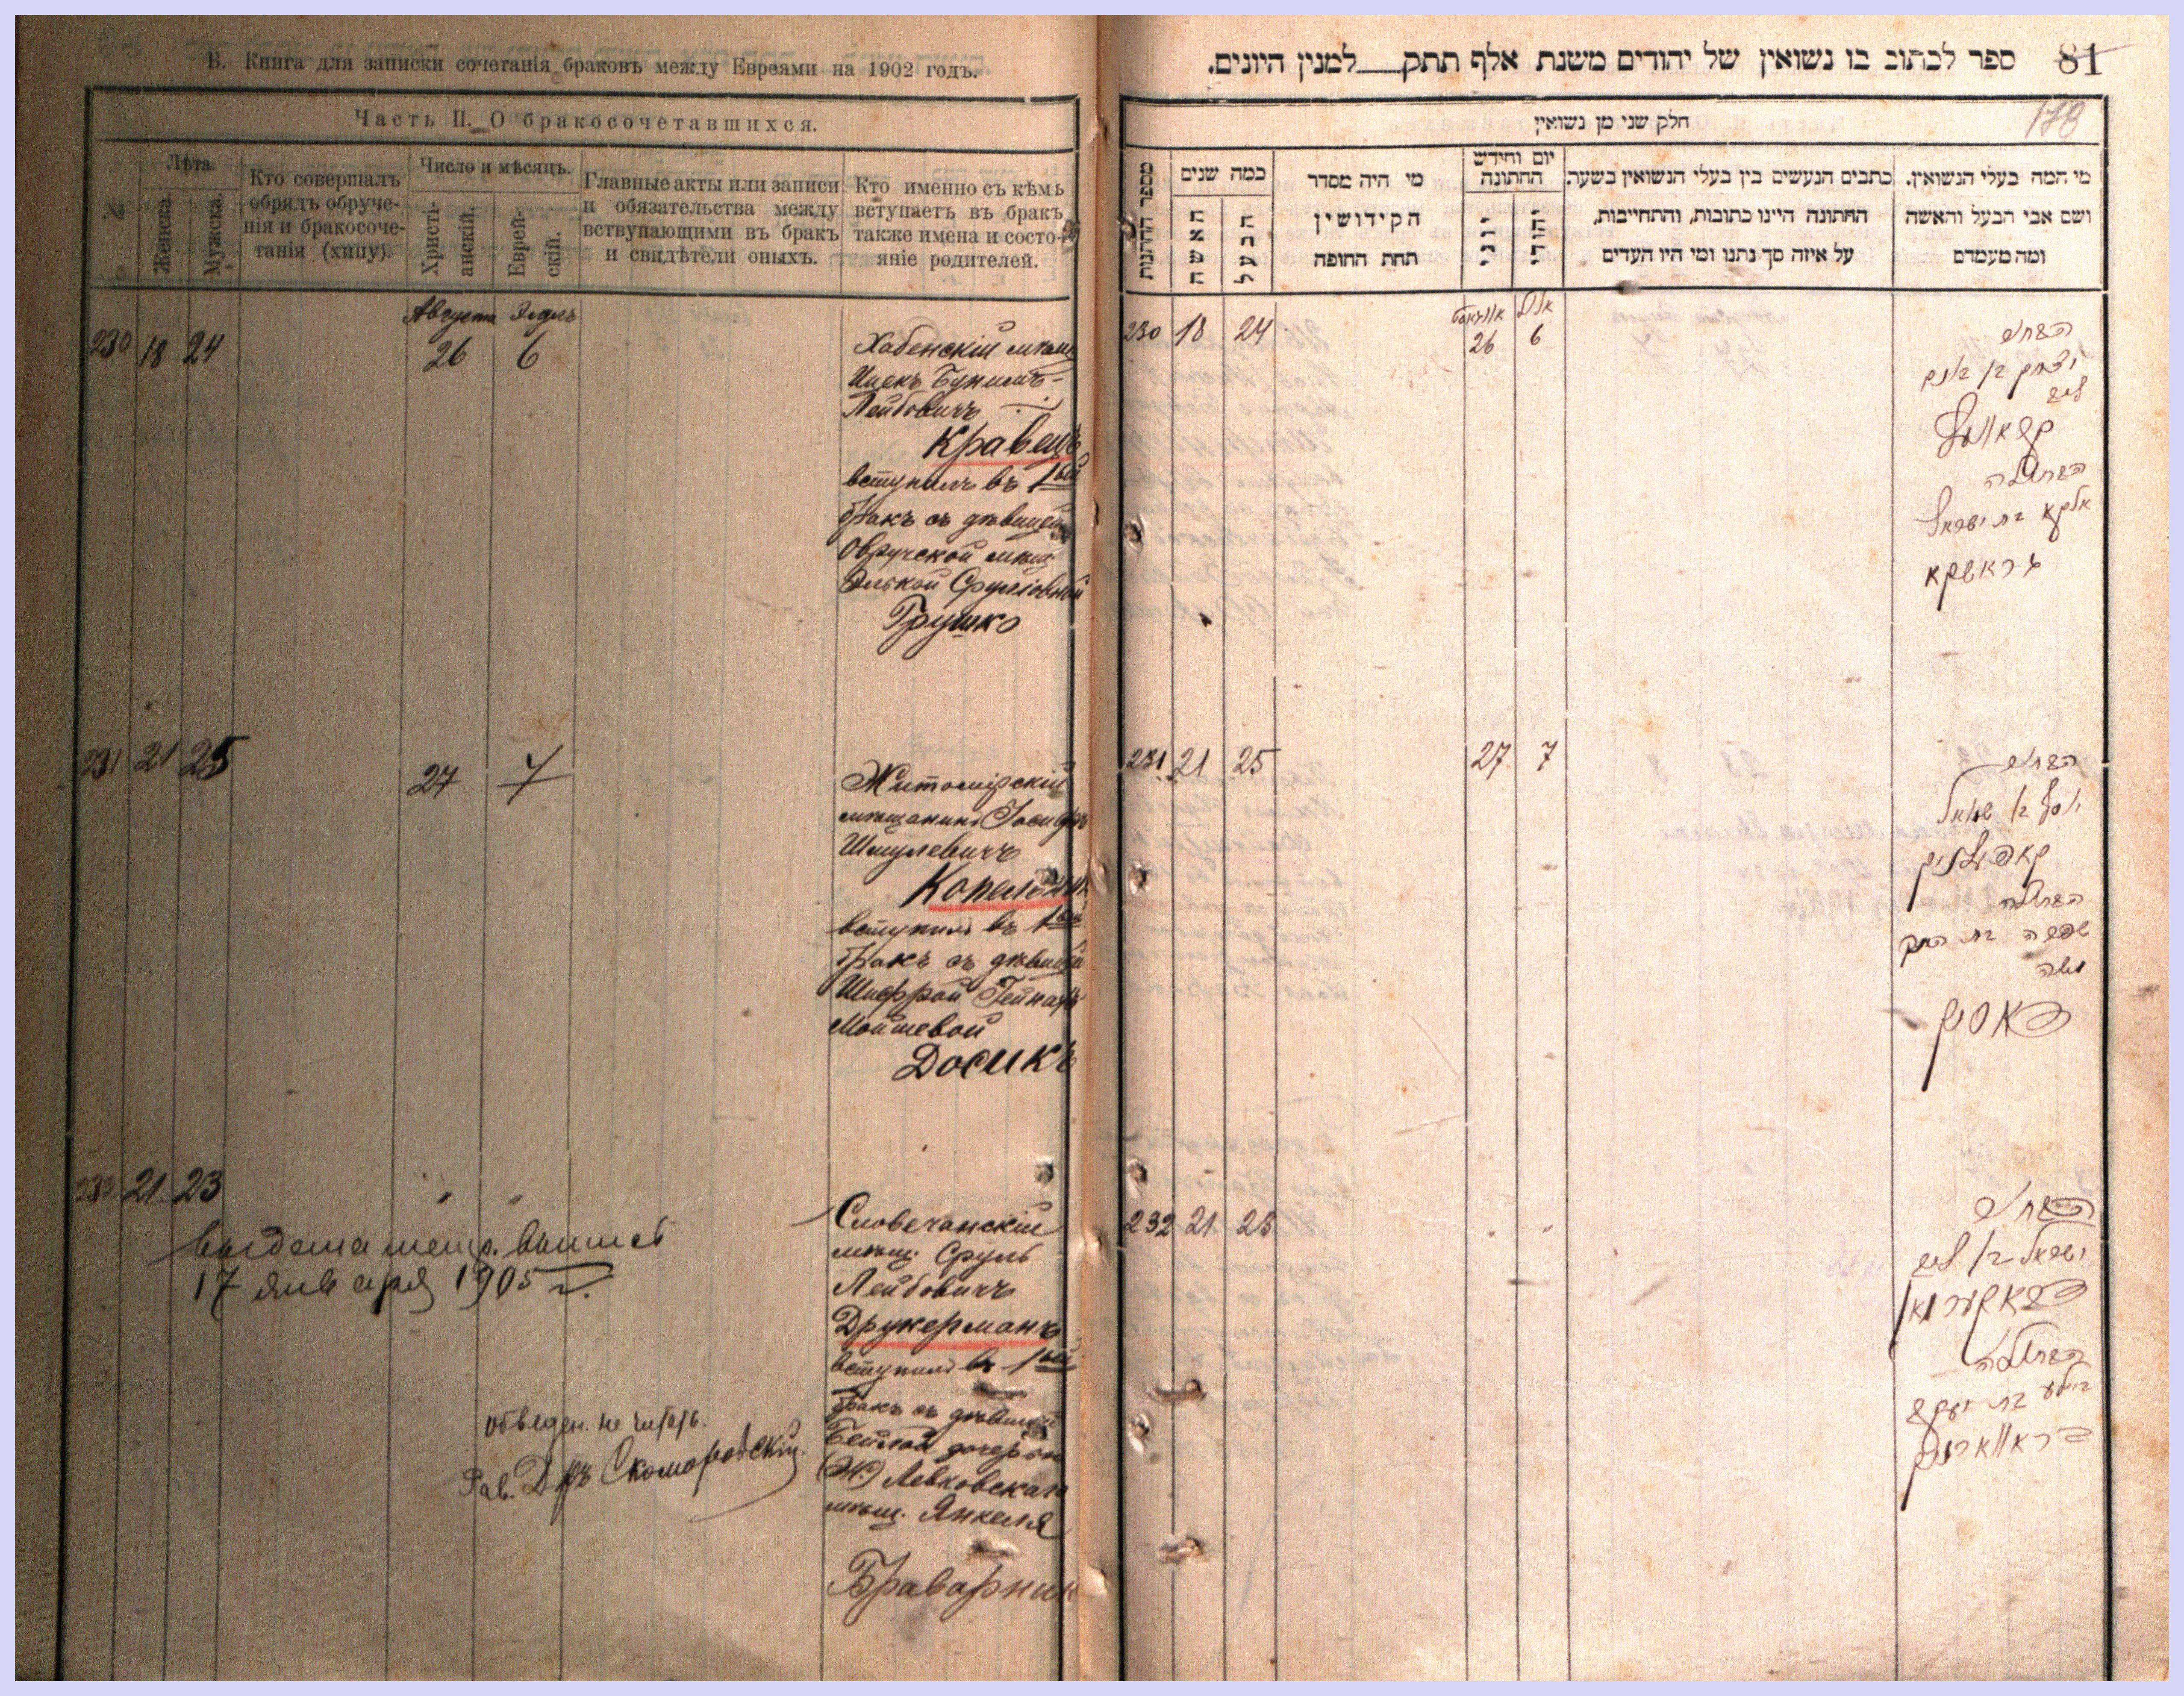 Б. Книга для записки сочетанія браковъ между Евреями на 1902 годъ.
Часть II. О бракосочетавшихся.
№
Лѣта.
Женска.
Мужска.
Кто совершалъ
обрядъ обруче-
нія и бракосоче-
танія (хипу).
Число и мѣсяцъ.
Христі-
анскій.
Еврей-
скій.
Главные акты или записи
и обязательства между
вствупающими въ бракъ
и свидѣтели оныхъ.
Кто именно съ кѣмъ
вступаетъ въ бракъ
также имена и состо-
яніе родителей.
Августа Элулъ
230 18 24 26 6
Хабенскій
Ицекъ Бунимъ-
Лейбовичъ
Кравецъ
вступилъ въ 1ый
бракъ съ дѣвицей
Овручской мѣщ
Элькой Сруліовной
Грушко
231 21 25 27 7
Житомірскій
мѣщанинъ Іосифъ
Шмулевичъ
вступилъ въ 1ый
бракъ съ дѣвицей
Шифрой
Мошевой
Досикъ
232 21 23 " "
выдана метр. выпись
17 января 1905 г.
Словечанскій
мѣщ. Сруль
Лейбовичъ
Друкерманъ
вступилъ въ 1ый
бракъ съ дѣвицей
Бейлой дочерью
(Ж.) Левковскаго
мѣщ. Янкеля
Браварник
обведен. не читать.
Рав. Д-ръ Скоморовскій.
ספר לכתוב בו נשואין של יהודים משנת אלף תתק למנין היונים.
81
178
חלק שני מן נשואין
מספר החתונות
כמה שנים
האשה
הבעל
מי היה מסדר
הקידושין
תחת החופה
יום וחידש
החתונה
יוני
יהודי
כתבים הנעשים בין בעלי הנשואין בשעה.
החתונה היינו כתובות, והתחייבות,
על איזה סך נתנו ומי היו העדים
מי המה בעלי הנשואין.
ושם אבי הבעל והאשה
ומה מעמדם
אווגוסט אלול
230 18 24 26 6
הבחור
יצחק בן בונם
ליב
קראוועץ
הבתולה
אלקא בת ישראל
גראשקא
231 21 25 27 7
הבחור
יוסף בן שמואל
קאפעלניק
הבתולה
שפרה בת
משה
דאסיק
232 21 23 " "
הבחור
ישראל בן ליב
דראקערמאן
הבתולה
ביילע בת יעקב
בראווארניק